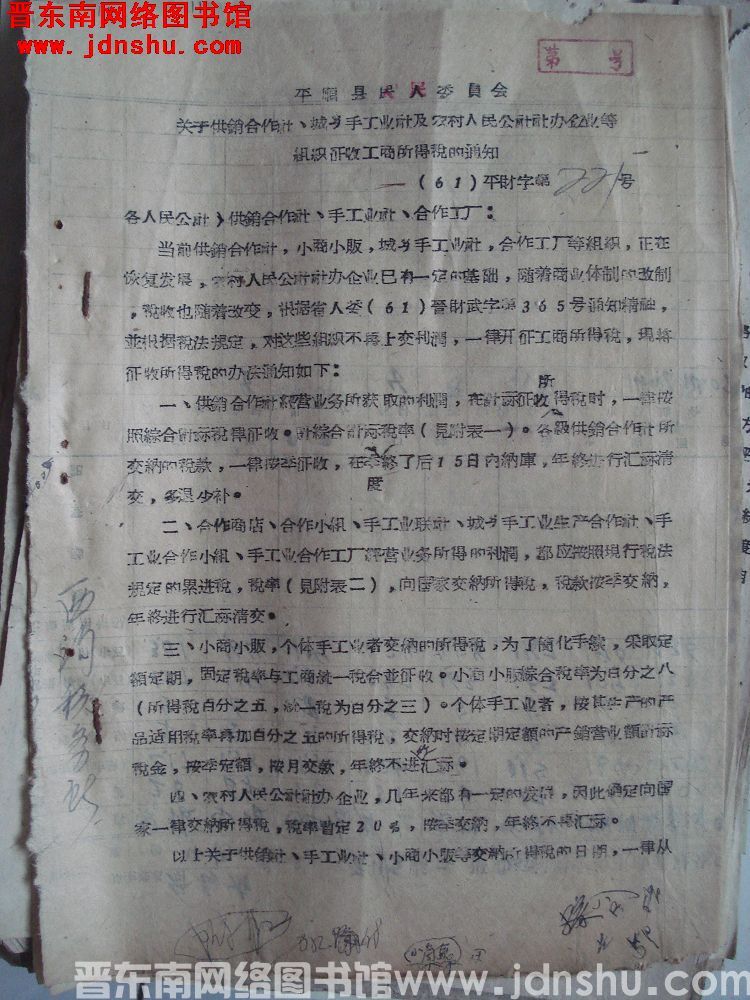 晋东南网络图书馆
www.jdnshu.com
第 号
平順县民人委員会
关于供銷合作社、城乡手工业社及农村人民公社社办企业等
組織征收工商所得税的通知
(61)平財字第221号
各人民公社、供銷合作社、手工业社、合作工厂：
当前供銷合作社，小商小販，城乡手工业社，合作工厂等組織，正在
恢复发展，农村人民公社社办企业已有一定的基础，随着商业体制的改制
，税收也随着改变，根据省人委(61)晉財武字第365号通知精神，
並根据税法規定，对这些組织不再上交利潤，一律开征工商所得税，現将
征收所得税的办法通知如下：
一、供銷合作社經营业务所获取的利潤，在計祘征收所得税时，一律按
照綜合計祘税率征收。計綜合計祘税率(見附表一)。各級供銷合作社所
交納的税款，一律按季征收，在季度終了后15日內納庫，年終进行汇祘清
交，多退少补。
二、合作商店、合作小組、手工业联社、城乡手工业生产合作社、手
工业合作小組、手工业合作工厂經营业务所得的利潤，都应按照現行税法
規定的累进税，税率(見附表二)，向国家交納所得税，税款按季交納，
年終进行汇祘清交。
三、小商小販，个体手工业者交納的所得税，为了簡化手續，采取定
額定期，固定税率与工商統一税合並征收。小商小販綜合税率为百分之八
(所得税百分之五，統一税为百分之三)。个体手工业者，按其生产的产
品适用税率再加百分之五的所得税，交納时按定期定額的产銷营业額計祘
税金，按季定額，按月交款，年終不进行汇祘。
四、农村人民公社社办企业，几年来都有一定的发展，因此确定向国
家一律交納所得税，税率暂定20%，按季交納，年終不再汇祘。
以上关于供銷社、手工业社、小商小販等交納所得税的日期，一律从
晋东南网络图书馆www.jdnshu.com